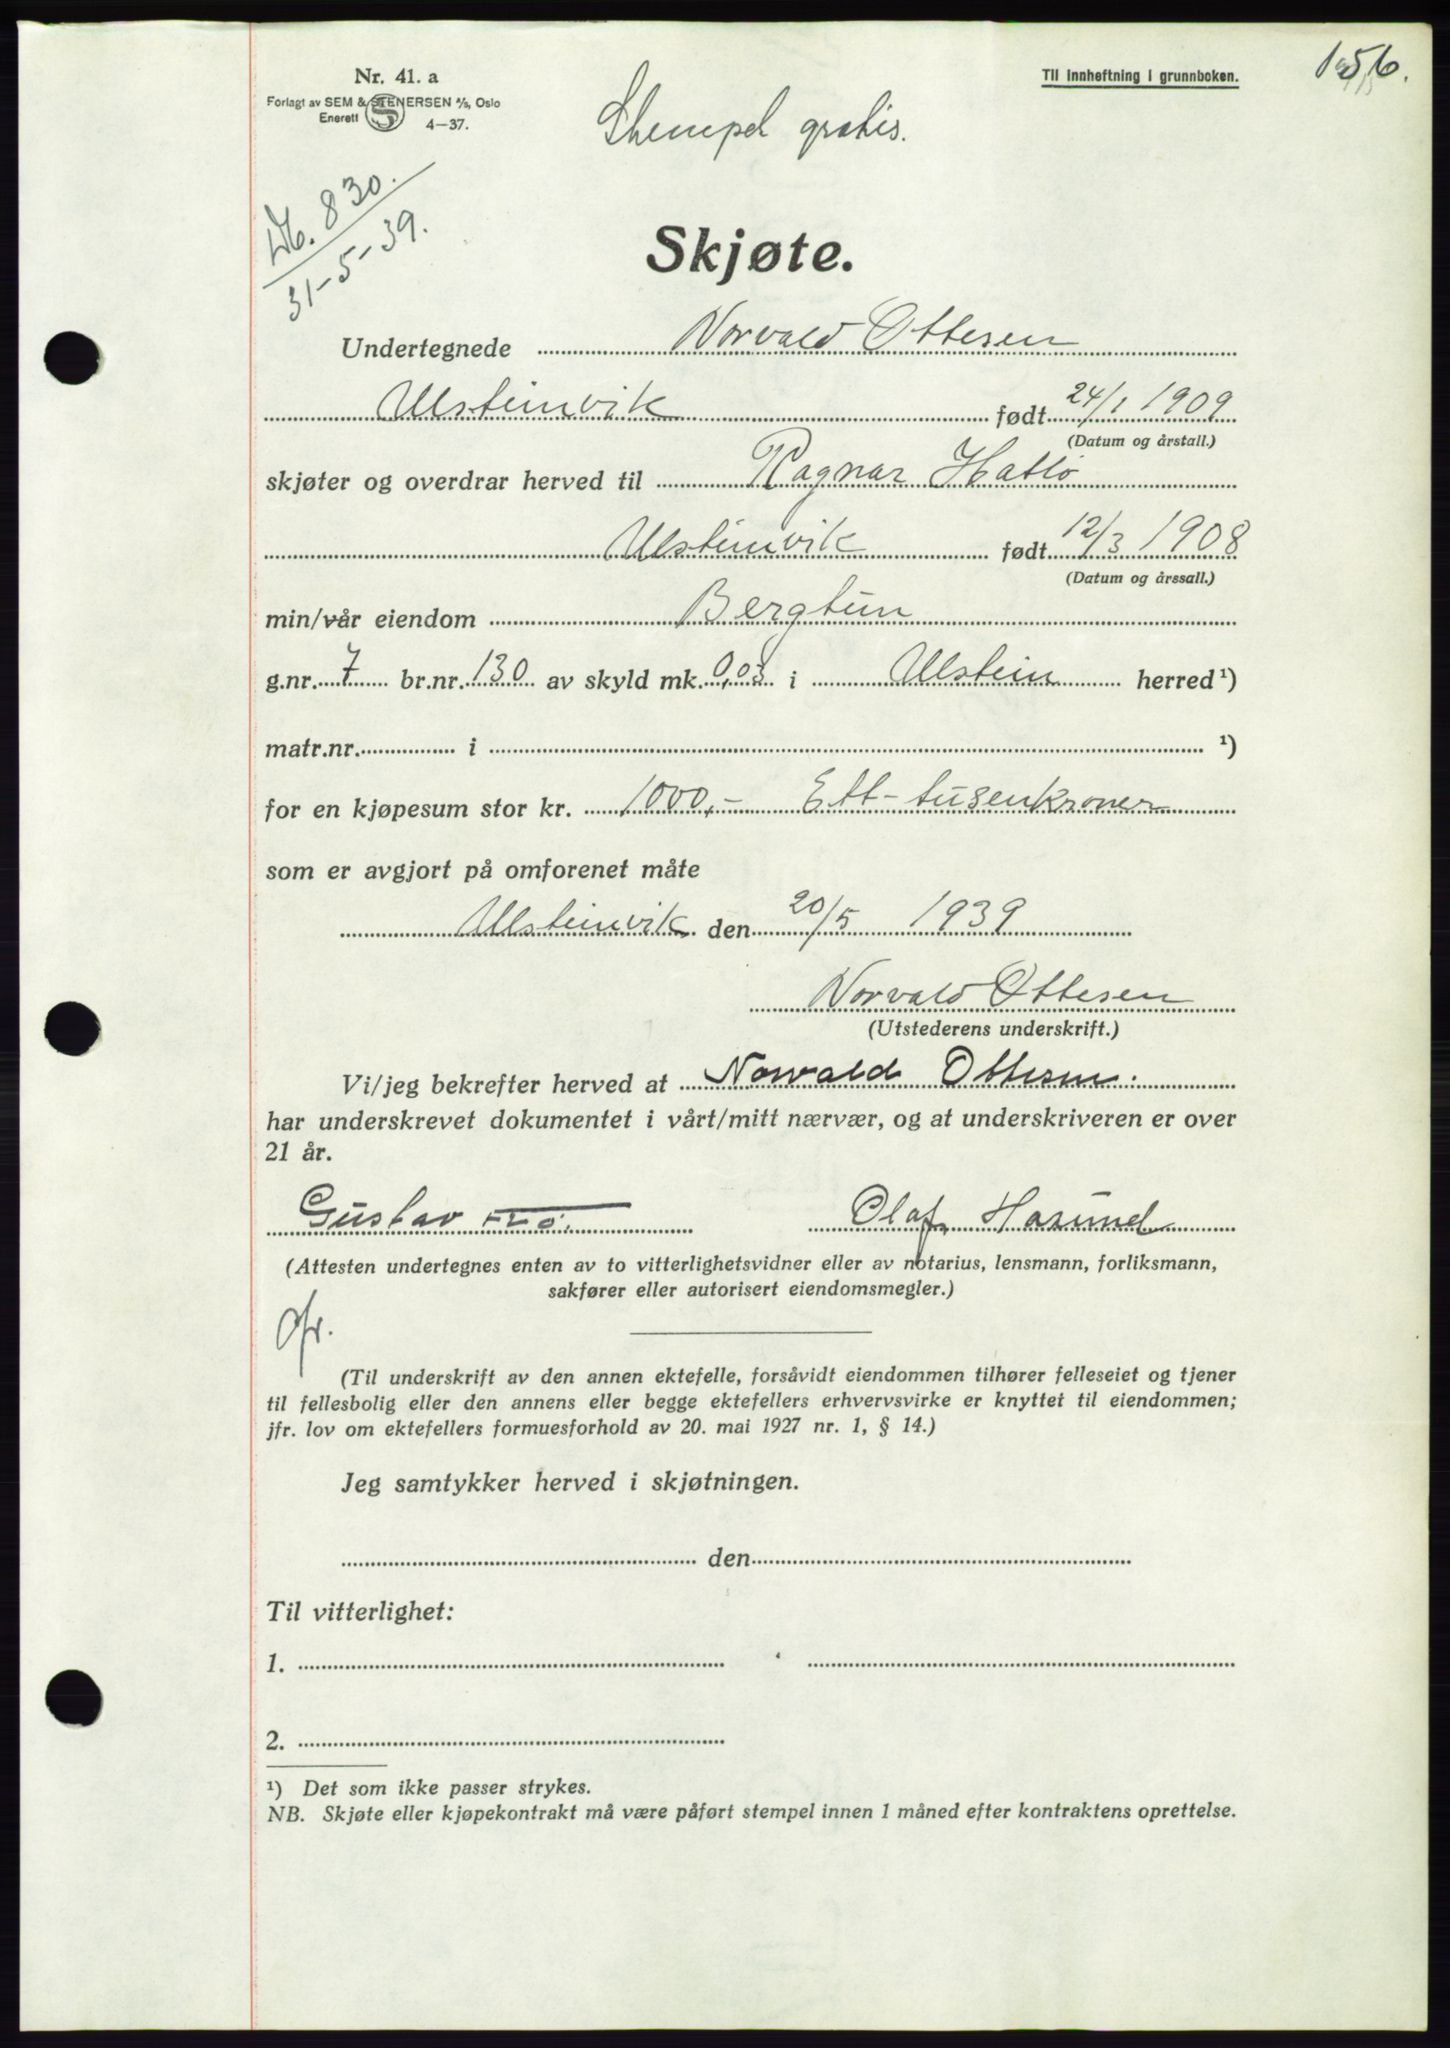 Nr. 41. a
Forlagt av SEM & STENERSEN A/S, Oslo
Enerett
4—37.
Til innheftning i grunnboken.
156.
Stempel gratis.
Db. 830.
31-5-39.
Skjøte.
Undertegnede Norvald Ottesen
Ulsteinvik født 24/1 1909
(Datum og årstall.)
skjøter og overdrar herved til Ragnar Hatlø
Ulsteinvik født 12/3 1908
(Datum og årssall.)
min/vår eiendom Bergtun
g.nr. 7 br.nr. 130 av skyld mk. 0,03 i Ulstein herred ¹)
matr.nr. i ¹)
for en kjøpesum stor kr. 1000,- Ett-tusenkroner
som er avgjort på omforenet måte
Ulsteinvik den 20/5 1939
Norvald Ottesen
(Utstederens underskrift.)
Vi/jeg bekrefter herved at Norvald Ottesen.
har underskrevet dokumentet i vårt/mitt nærvær, og at underskriveren er over
21 år.
Gustav Olaf Hasund
(Attesten undertegnes enten av to vitterlighetsvidner eller av notarius, lensmann, forliksmann,
sakfører eller autorisert eiendomsmegler.)
(Til underskrift av den annen ektefelle, forsåvidt eiendommen tilhører felleseiet og tjener
til fellesbolig eller den annens eller begge ektefellers erhvervsvirke er knyttet til eiendommen;
jfr. lov om ektefellers formuesforhold av 20. mai 1927 nr. 1, § 14.)
Jeg samtykker herved i skjøtningen.
den
Til vitterlighet:
1.
2.
¹) Det som ikke passer strykes.
NB. Skjøte eller kjøpekontrakt må være påført stempel innen 1 måned efter kontraktens oprettelse.